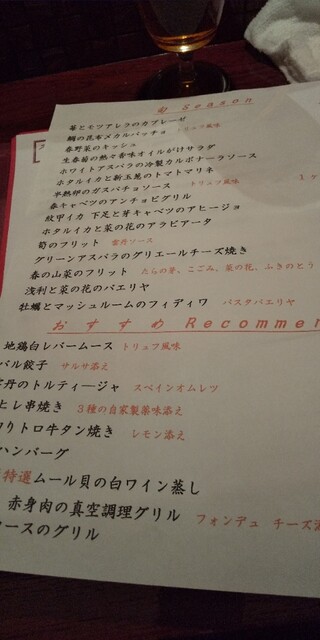 旬 Season
苺とモツアレラのカプレーゼ
鯛の昆布〆カルパッチョ トリュフ風味
春野菜のキッシュ
生春菊の熱々香味オイルがけサラダ
ホワイトアスパラの冷製カルボナーラソース
ホタルイカと新玉葱のトマトマリネ
半熟卵のガスパチョソース トリュフ風味
春キャベツのアンチョビグリル
紋甲イカ 下足と芽キャベツのアヒージョ
ホタルイカと菜の花のアラビアータ
筍のフリット 雲丹ソース
グリーンアスパラのグリエールチーズ焼き
春の山菜のフリット たらの芽、こごみ、菜の花、ふきのとう
浅利と菜の花のパエリヤ
牡蠣とマッシュルームのフィディワ パスタパエリヤ
おすすめ Recommen
地鶏白レバームース トリュフ風味
バル餃子 サルサ添え
丹のトルティージャ スペインオムレツ
ヒレ串焼き 3種の自家製薬味添え
りトロ牛タン焼き レモン添え
ハンバーグ
特選ムール貝の白ワイン蒸し
赤身肉の真空調理グリル フォンデュ チーズ
ースのグリル